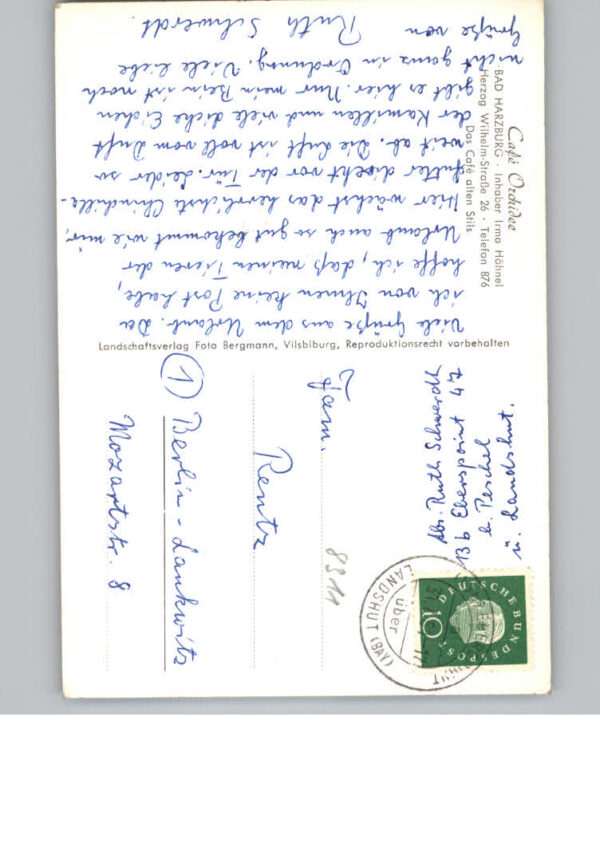 Café Orchidee
BAD HARZBURG · Inhaber Irma Höhnel
Herzog Wilhelm-Straße 26 · Telefon 876
Das Café alten Stils
Viele Grüße aus dem Urlaub. Da
ich von Ihnen keine Post habe,
hoffe ich, daß meinen Tieren der
Urlaub auch so gut bekommt wie mir,
Hier wächst das herrlichste Chinchilla-
futter direkt vor der Tür. Leider so
weit ab. Die Luft ist voll vom Duft
der Kamillen und viele dicke Eichen
gibt es hier. Nur mein Bein ist noch
nicht ganz in Ordnung. Viele liebe
Grüße von Ruth Schwerdt.
Landschaftsverlag Foto Bergmann, Vilsbiburg, Reproduktionsrecht vorbehalten
Abs. Ruth Schwerdt
13b Eberspoint 47
b. Peschel
ü. Landshut.
DEUTSCHE BUNDESPOST
10
über
LANDSHUT (BAY)
Fam.
Rentz
(1) Berlin-Lankwitz
Mozartstr. 8
8311